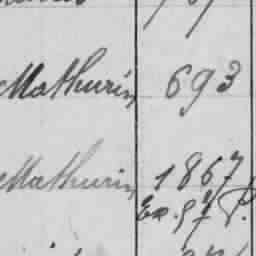 Mathurin 693
Mathurin 1867
Ex. 97 P.